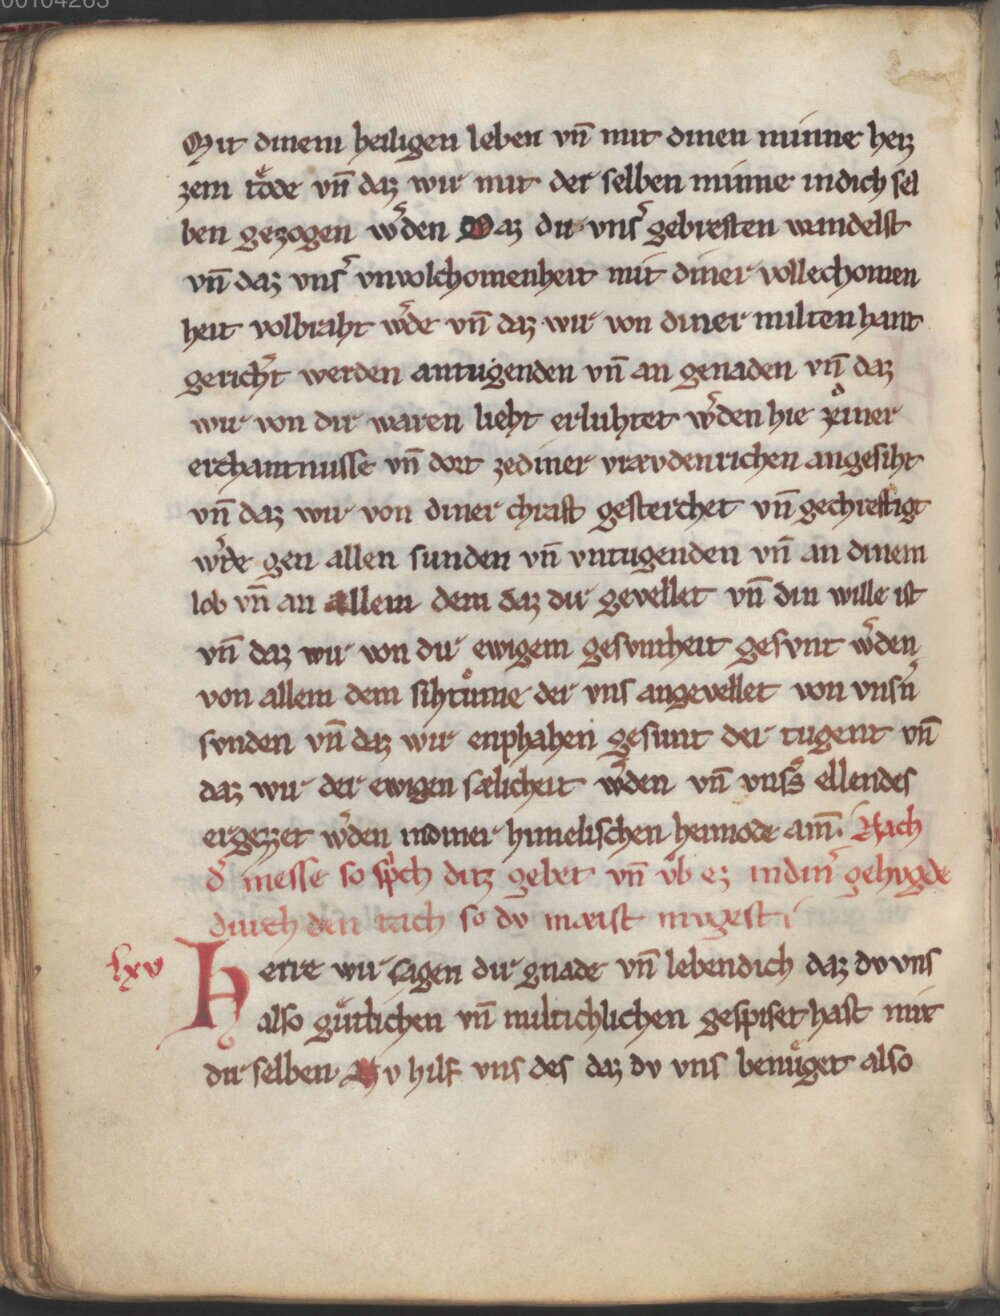 00104263
Mit dinem heiligen leben vn̄ mit dinen minne herz
zem tode vn̄ daz wir mit der selben minne indich sel
ben gezogen wͤden Daz du vnsͬ gebresten wandelst
vn̄ daz vnsͬ vnvolchomenheit mit diner vollechomen
heit volbraht wͤde vn̄ daz wir von diner milten hant
gerichͤt werden antugenden vn̄ an genaden vn̄ daz
wir von dir waren lieht erluhtet wͤden hie zediner
erchantnusse vn̄ dort zediner vrævdenrichen angesiht
vn̄ daz wir von diner chraft gesterchet vn̄ gechreftigt
wͤde gen allen sunden vn̄ vntugenden vn̄ an dinem
lob vn̄ an allem dem daz dir gevellet vn̄ din wille ist
vn̄ daz wir von dir ewigem gesuntheit gesvnt wͤden
von allem dem sihtůme der vns angevellet von vnsn̄
svnden vn̄ daz wir enphahen gesunt der tugent vn̄
daz wir der ewigen sælicheit wͤden vn̄ vnsͤs ellendes
ergezzet wͤden indiner himelischen heimode am̄. Nach
dͤ messe so sp̾ch ditz gebet vn̄ vͤb ez indinͤ gehvgde
durch den tach so dv mæist mvgest
lxv
Herre wir sagen dir gnade vn̄ lebendich daz dv vns
also gůtlichen vn̄ miltichlichen gespiset hast mit
dir selben Nv hilf vns des daz dv vns benůget also